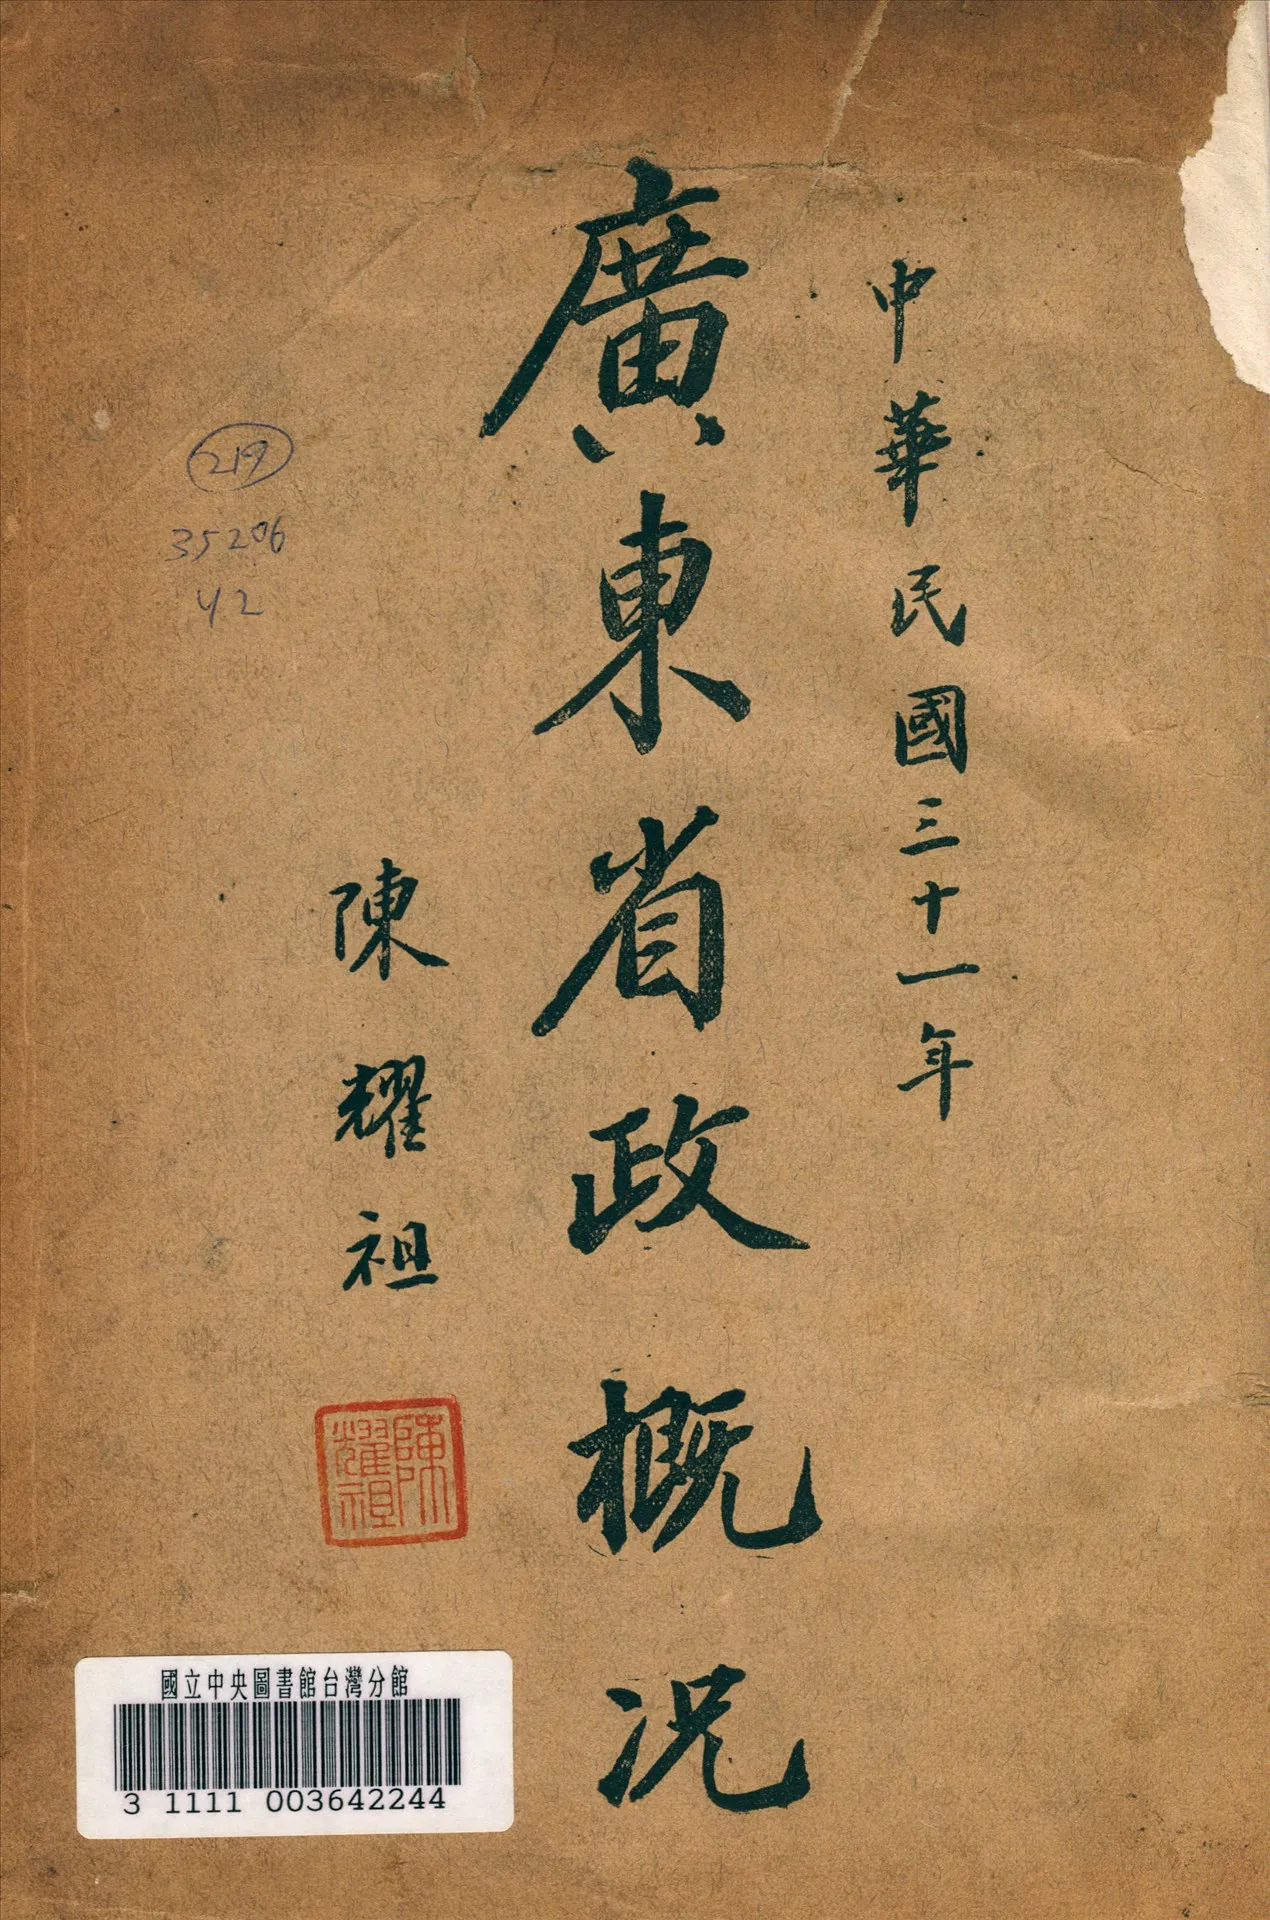 中華民國三十一年
廣東省政概況
陳耀祖
陳耀祖
219
35206
42
國立中央圖書館台灣分館
3 1111 003642244